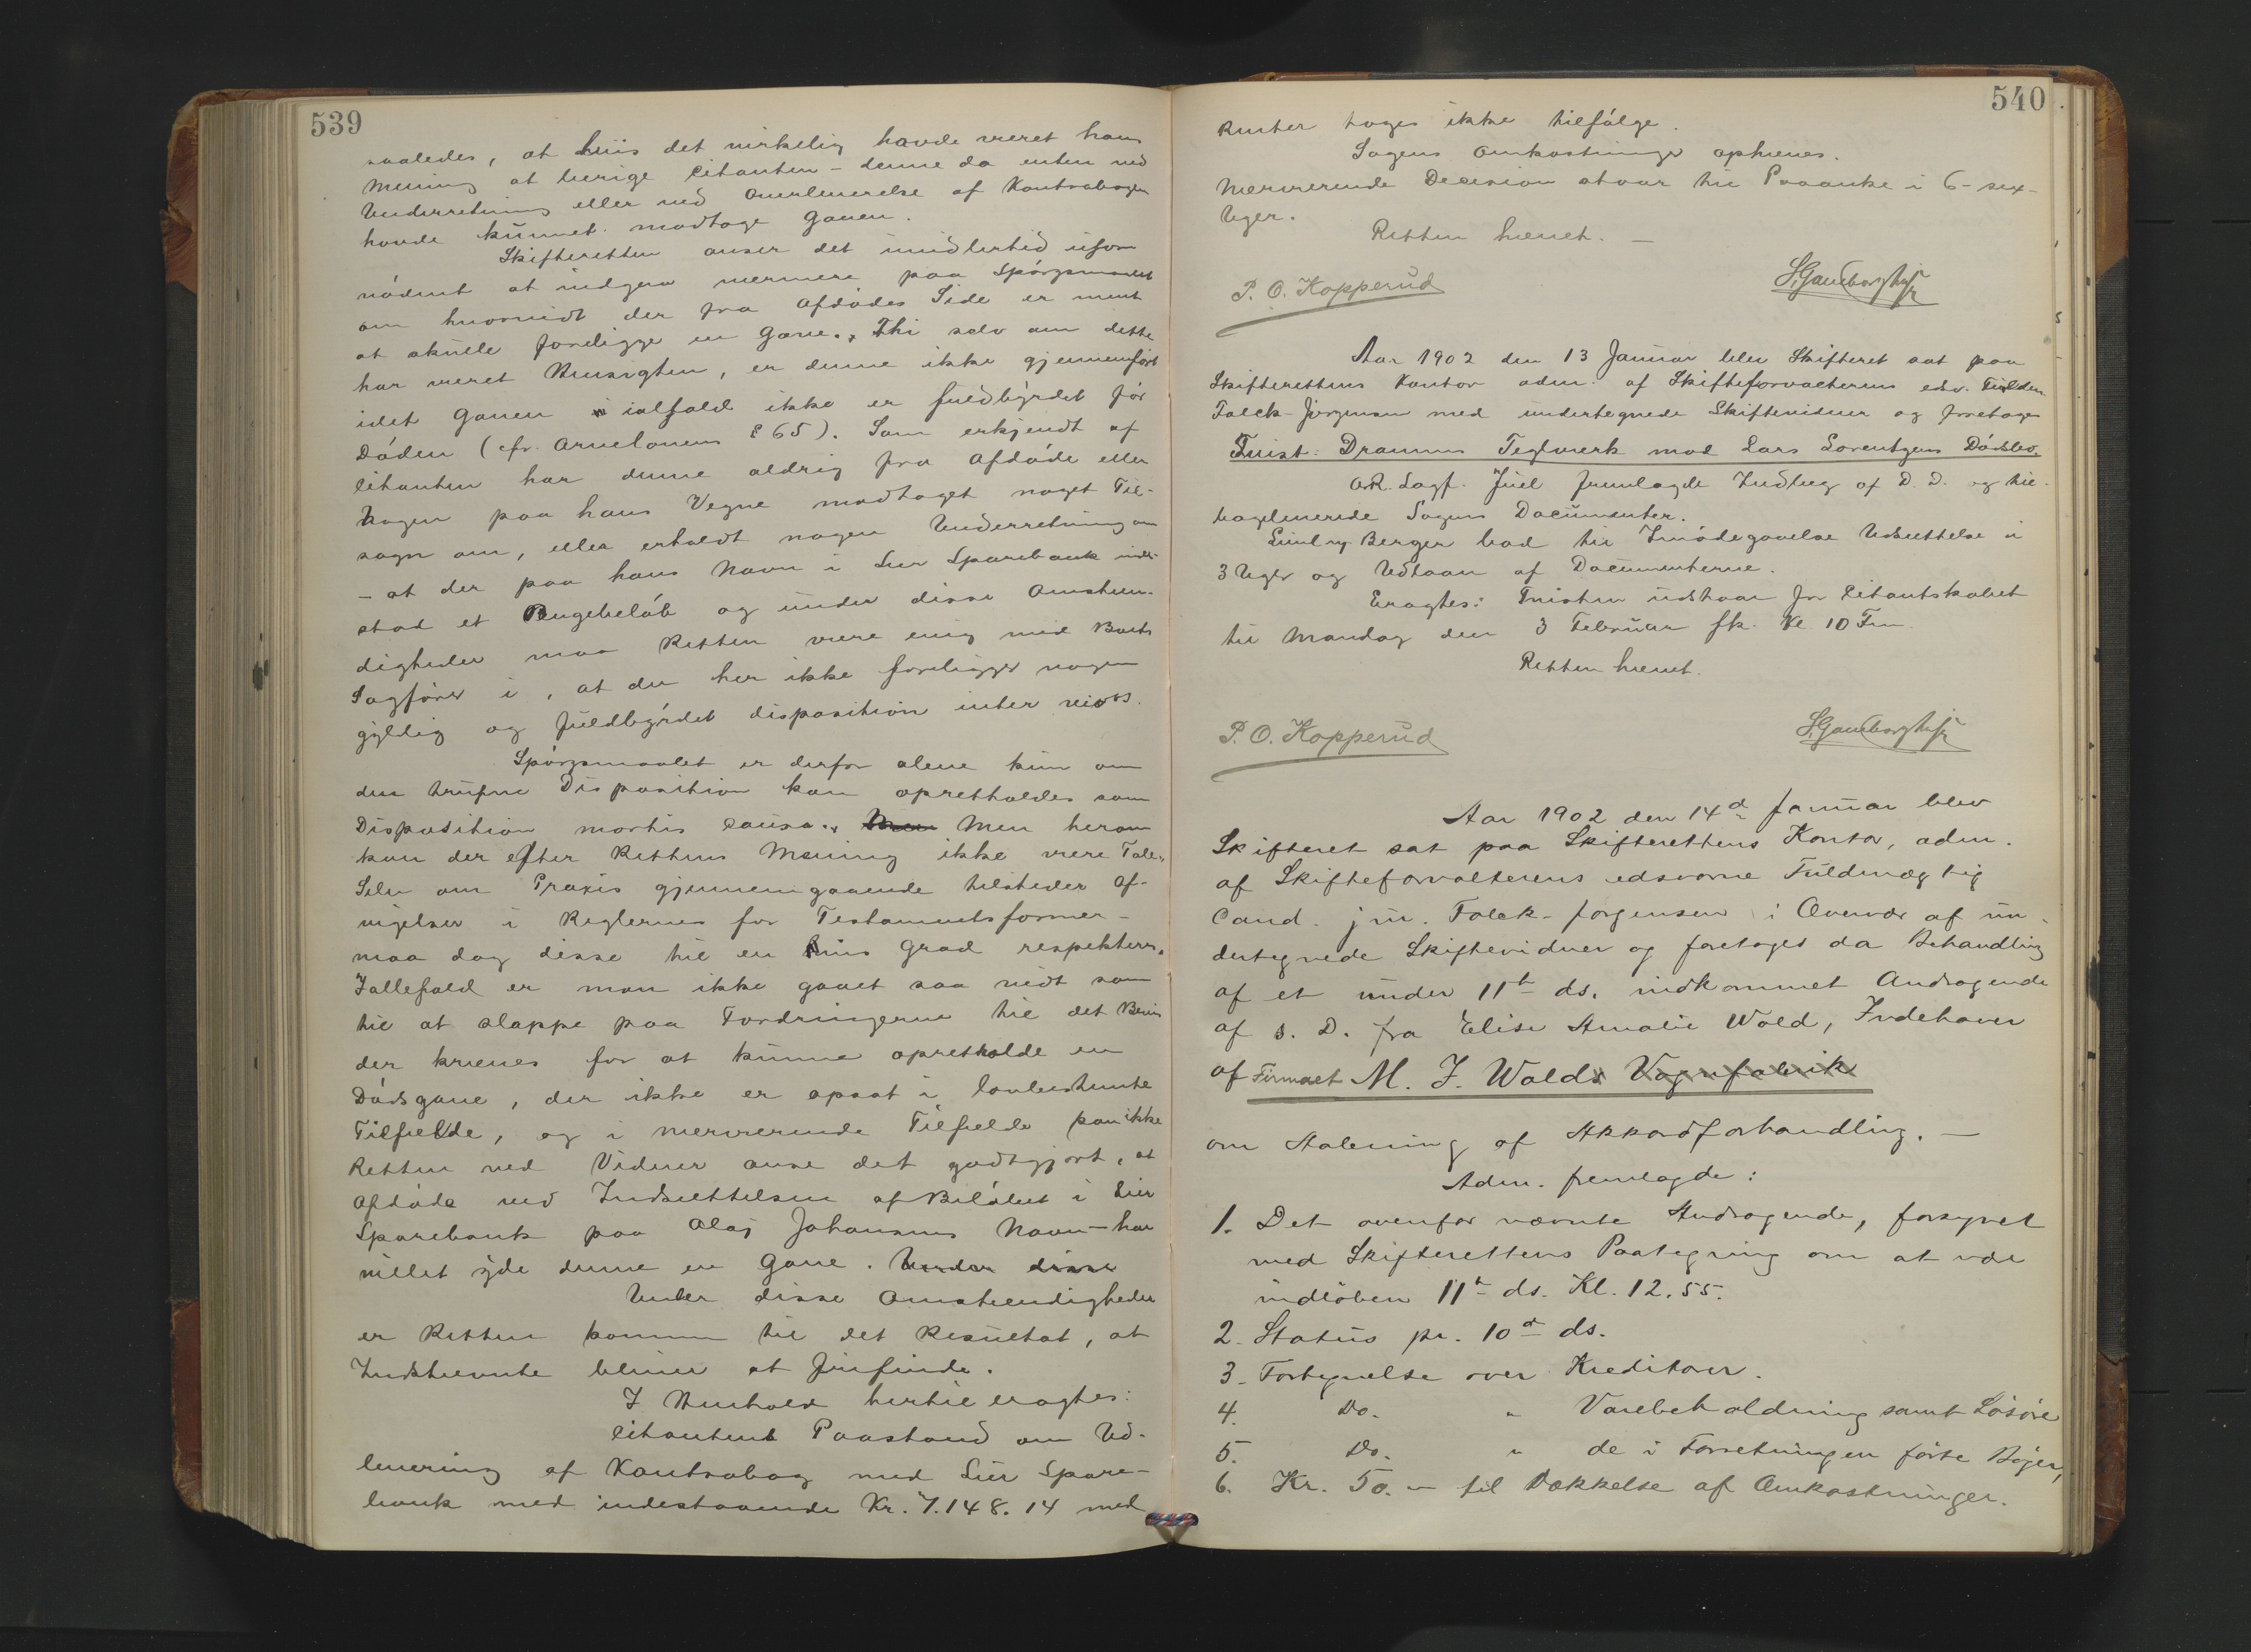 539
saaledes, at hvis det virkelig havde været hans
Mening at berige Citanten - denne da enten ved
Underretning eller ved Overleverelse af Kontrabogen
havde kunnet modtage Gaven.
Skifteretten anser det imidlertid ufor
nødent at indgaa nærmere paa Spørgsmaalet
om hvorvidt der fra Afdødes Side er ment
at skulle foreligge en Gave. Thi selv om dette
har været Hensigten, er denne ikke gjennemført
idet Gaven ialfald ikke er fuldbyrdet før
Døden (cfr. Arvelovens § 65). Som erkjendt af
Citanten har denne aldrig fra Afdøde eller
Nogen paa hans Vegne modtaget noget Til-
sagn om, eller erholdt nogen Underretning om
- at der paa hans Navn i Lier Sparebank inde-
stod et Pengebeløb og under disse Omstæn-
digheder maa Retten være enig med Boets
Sagfører i, at der her ikke foreligger nogen
gyldig og fuldbyrdet disposition inter vivos.
Spørgsmaalet er derfor alene kun om
den trufne Disposition kan opretholdes som
Disposition mortis causa. Men Men herom
kan der efter Rettens Mening ikke være Tale.
Selv om Praxis gjennemgaaende tilsteder Af-
vigelser i Reglerne for Testamentsformer -
maa dog disse til en vis Grad respekteres.
Iallefald er man ikke gaaet saa vidt som
til at slappe paa Fordringerne til det Bevis
der kræves for at kunne opretholde en
Dødsgave, der ikke er opsat i lovbestemte
Tilfælde, og i nærværende Tilfælde kan ikke
Retten ved Vidner anse det godtgjort, at
Afdøde ved Indsættelsen af Beløbet i Lier
Sparebank paa Olaj Johansens Navn - har
villet yde denne en Gave. Under disse
Under disse Omstændigheder
er Retten kommen til det Resultat, at
Indstevnte bliver at frifinde.
I Henhold hertil eragtes:
Citantens Paastand om Ud-
levering af Kontrabog med Lier Spare-
bank med indestaaende Kr. 7.148.14 med
540
Renter tages ikke tilfølge.
Sagens Omkostninger ophæves.
Nærværende Decision staar til Paaanke i 6 - sex -
Uger.
Retten hævet. -
P. O. Kopperud
Aar 1902 den 13 Januar blev Skifteret sat paa
Skifterettens Kontor adm. af Skifteforvalterens edsv. Fuldm.
Falck-Jørgensen med undertegnede Skiftevidner og foretoges
Tvist: Drammens Teglverk mod Lars Lorentzens Dødsbo.
O.R. Sagf. Juel fremlagde Indlæg af D. D. og til-
bageleverede Sagens Documenter.
Berger bad til Imødegaaelse Udsættelse i
3 Uger og Udlaan af Documenterne.
Eragtes: Tvisten udstaar for Citantskabet
til Mandag den 3 Februar fk. Kl 10 Fm.
Retten hævet.
P. O. Kopperud
Aar 1902 den 14d Januar blev
Skifteret sat paa Skifterettens Kontor, adm.
af Skifteforvalterens edsvorne Fuldmægtig
Cand. jur. Falck-Jørgensen i Overvær af un-
dertegnede Skiftevidner og foretoges da Behandling
af et under 11te ds. indkommet Andragende
af s. D. fra Elise Amalie Wold, Indehaver
af Firmaet M. J. Wolds Vognfabrik
om Aabning af Akkordforhandling. -
Adm. fremlagde:
1. Det ovenfor nævnte Andragende, forsynet
med Skifterettens Paategning om at være
indløben 11te ds. Kl. 12.55.
2. Status pr. 10de ds.
3. Fortegnelse over Kreditorer.
4. Do. " Varebeholdning samt Løsøre
5. Do. " de i Forretningen førte Bøger,
6. Kr. 50. - til Dækkelse af Omkostninger.